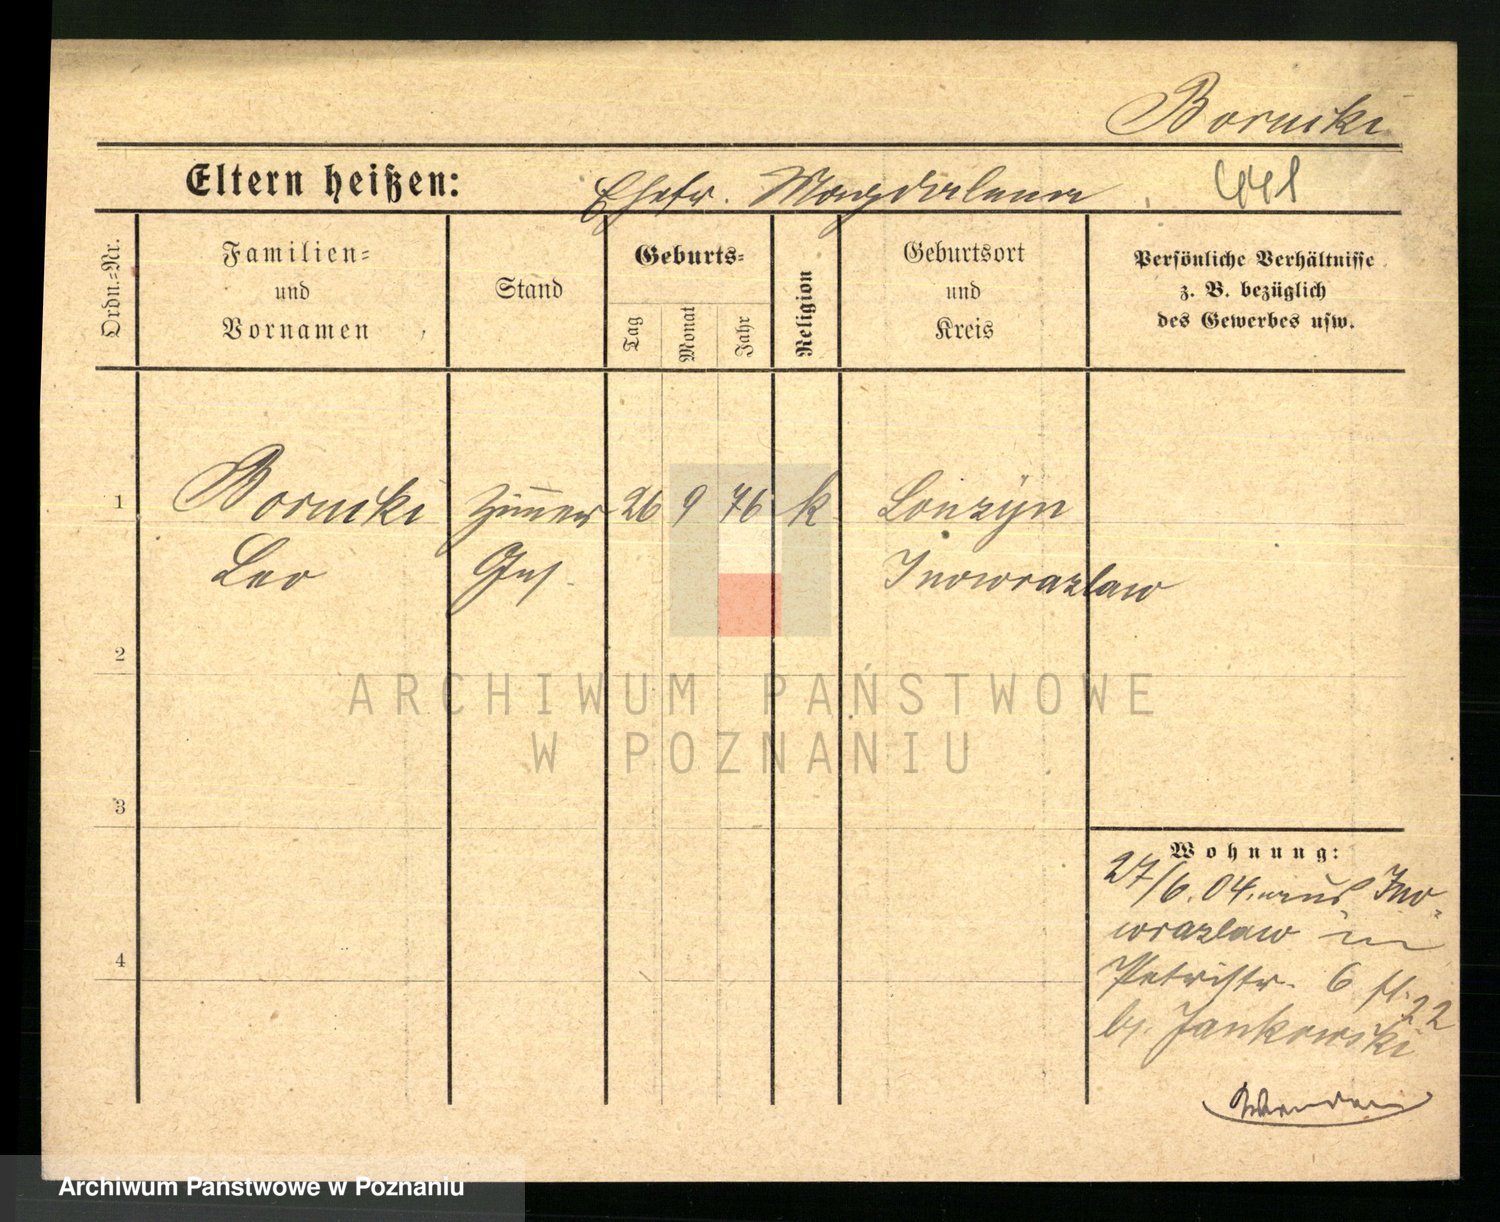 Bornicki
Eltern heißen: Ehefr. Magdalena 441
Ordn.-Nr.
Familien-
und
Vornamen
Stand
Geburts-
Tag
Monat
Jahr
Religion
Geburtsort
und
Kreis
Persönliche Verhältnisse
z. B. bezüglich
des Gewerbes usw.
1 Bornicki Zimmer 26 9 76 k Lonzyn
Leo Ges. Inowrazlaw
2
3
4
Wohnung:
27/6.04. aus Ino-
wrazlaw in
Petristr. 6 22
bei Jankowski
ARCHIWUM PAŃSTWOWE
W POZNANIU
Archiwum Państwowe w Poznaniu